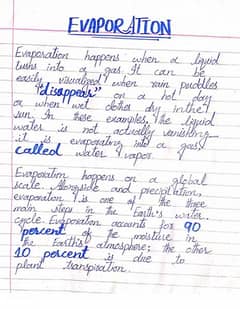 EVAPORATION
Evaporation happens when a liquid
tushs into a gas. It can be
easily visualized when rain puddles
"disappear" on a hot day
or when wet clothes dry in the
sun. In these examples, the liquid
water is not actually vanishing
it is evaporating into a gas
called water vapor.
Evaporation happens on a global
scale. Alongside and precipitation,
evaporation is one of the three
main steps in the Earth's water
cycle. Evaporation accounts for 90
percent of the moisture in
the Earth's atmosphere; the other
10 percent is due to
plant transpiration.